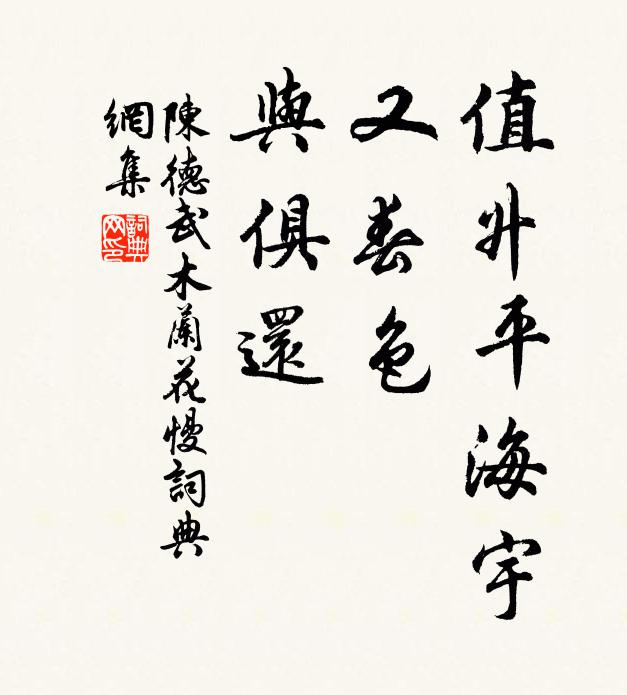 值升平海宇
又春色
與俱還
陳德武木蘭花慢詞典
網集
詞典網印